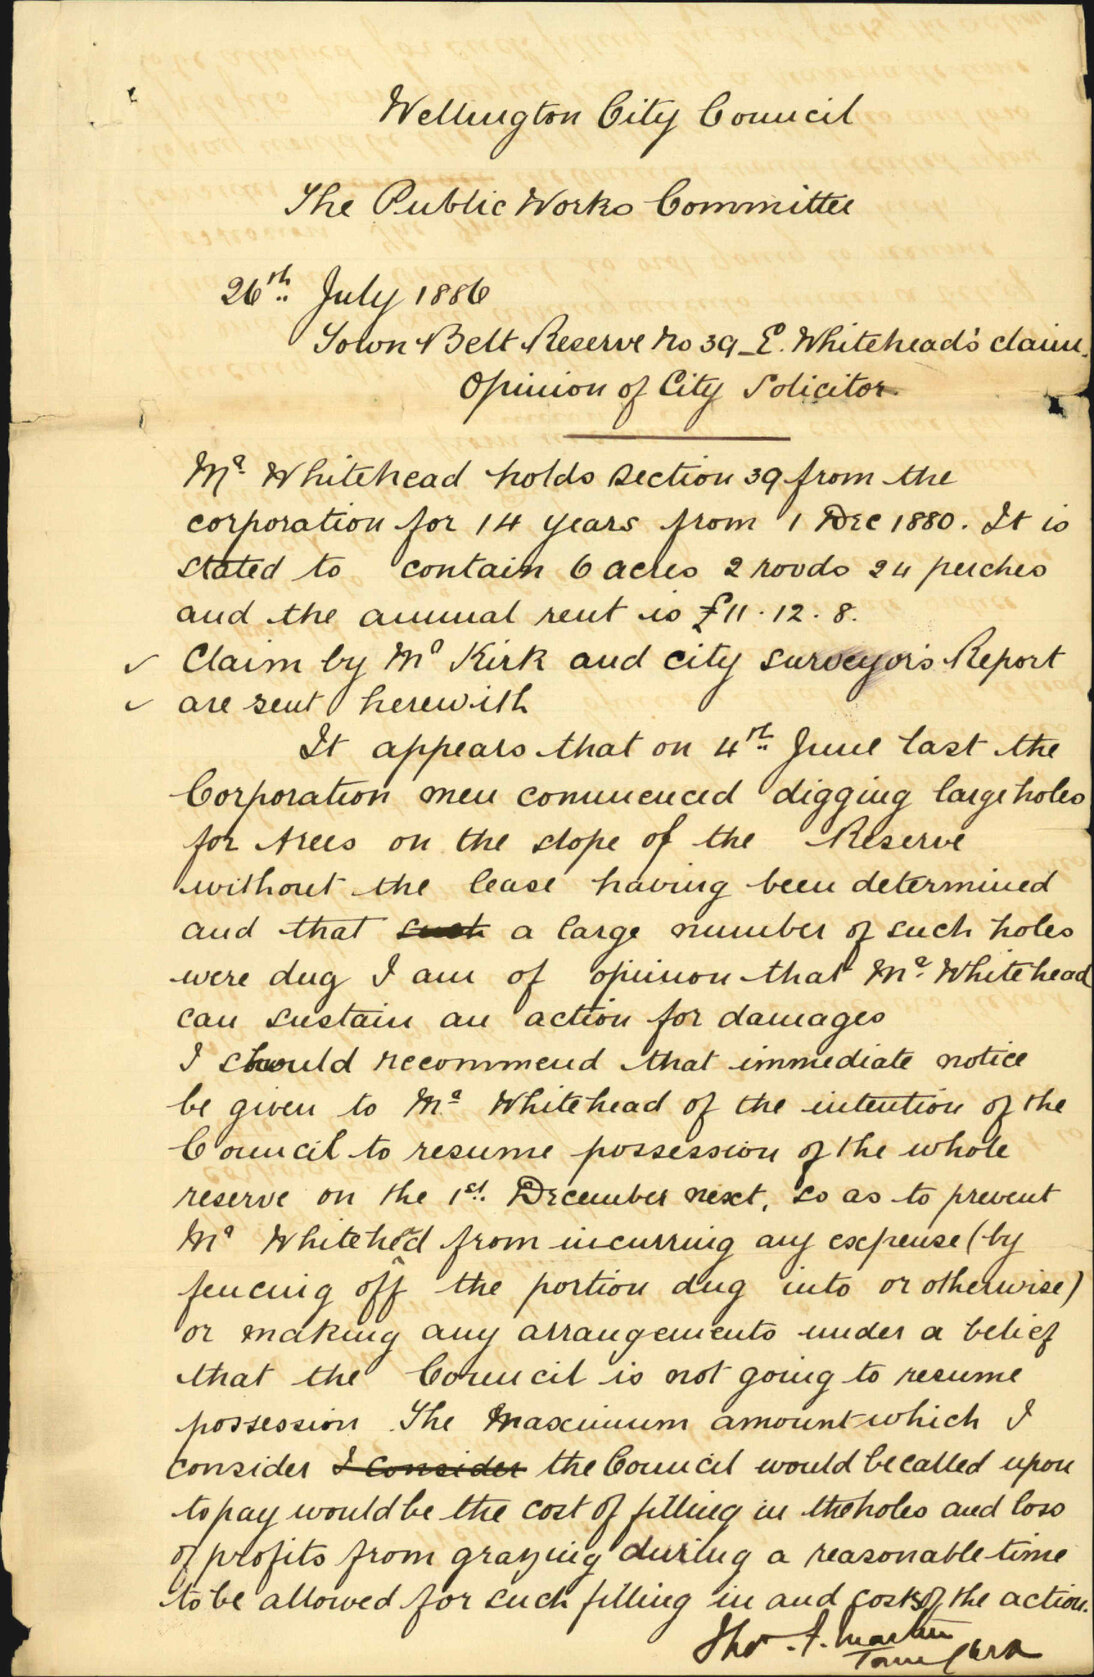 Wellington City Council
The Public Works Committee
26th July 1886
Town Belt Reserve No 39 _ E. Whitehead's claim.
Opinion of City Solicitor
Mr Whitehead holds section 39 from the
corporation for 14 years from 1 Dec 1880. It is
stated to contain 6 acres 2 roods 24 perches
and the annual rent is £11. 12. 8.
✓ Claim by Mr Kirk and city surveyor's Report
✓ are sent herewith
It appears that on 4th June last the
Corporation men commenced digging large holes
for trees on the slope of the Reserve
without the lease having been determined
and that such a large number of such holes
were dug I am of opinion that Mr Whitehead
can sustain an action for damages
I should recommend that immediate notice
be given to Mr Whitehead of the intention of the
Council to resume possession of the whole
reserve on the 1st December next, so as to prevent
Mr Whitehead from incurring any expense (by
fencing off the portion dug into or otherwise)
or making any arrangements under a belief
that the Council is not going to resume
possession. The maximum amount which I
consider I consider the Council would be called upon
to pay would be the cost of filling in the holes and loss
of profits from grazing during a reasonable time
to be allowed for such filling in and costs of the action.
Thos. F. Martin
Town Clerk